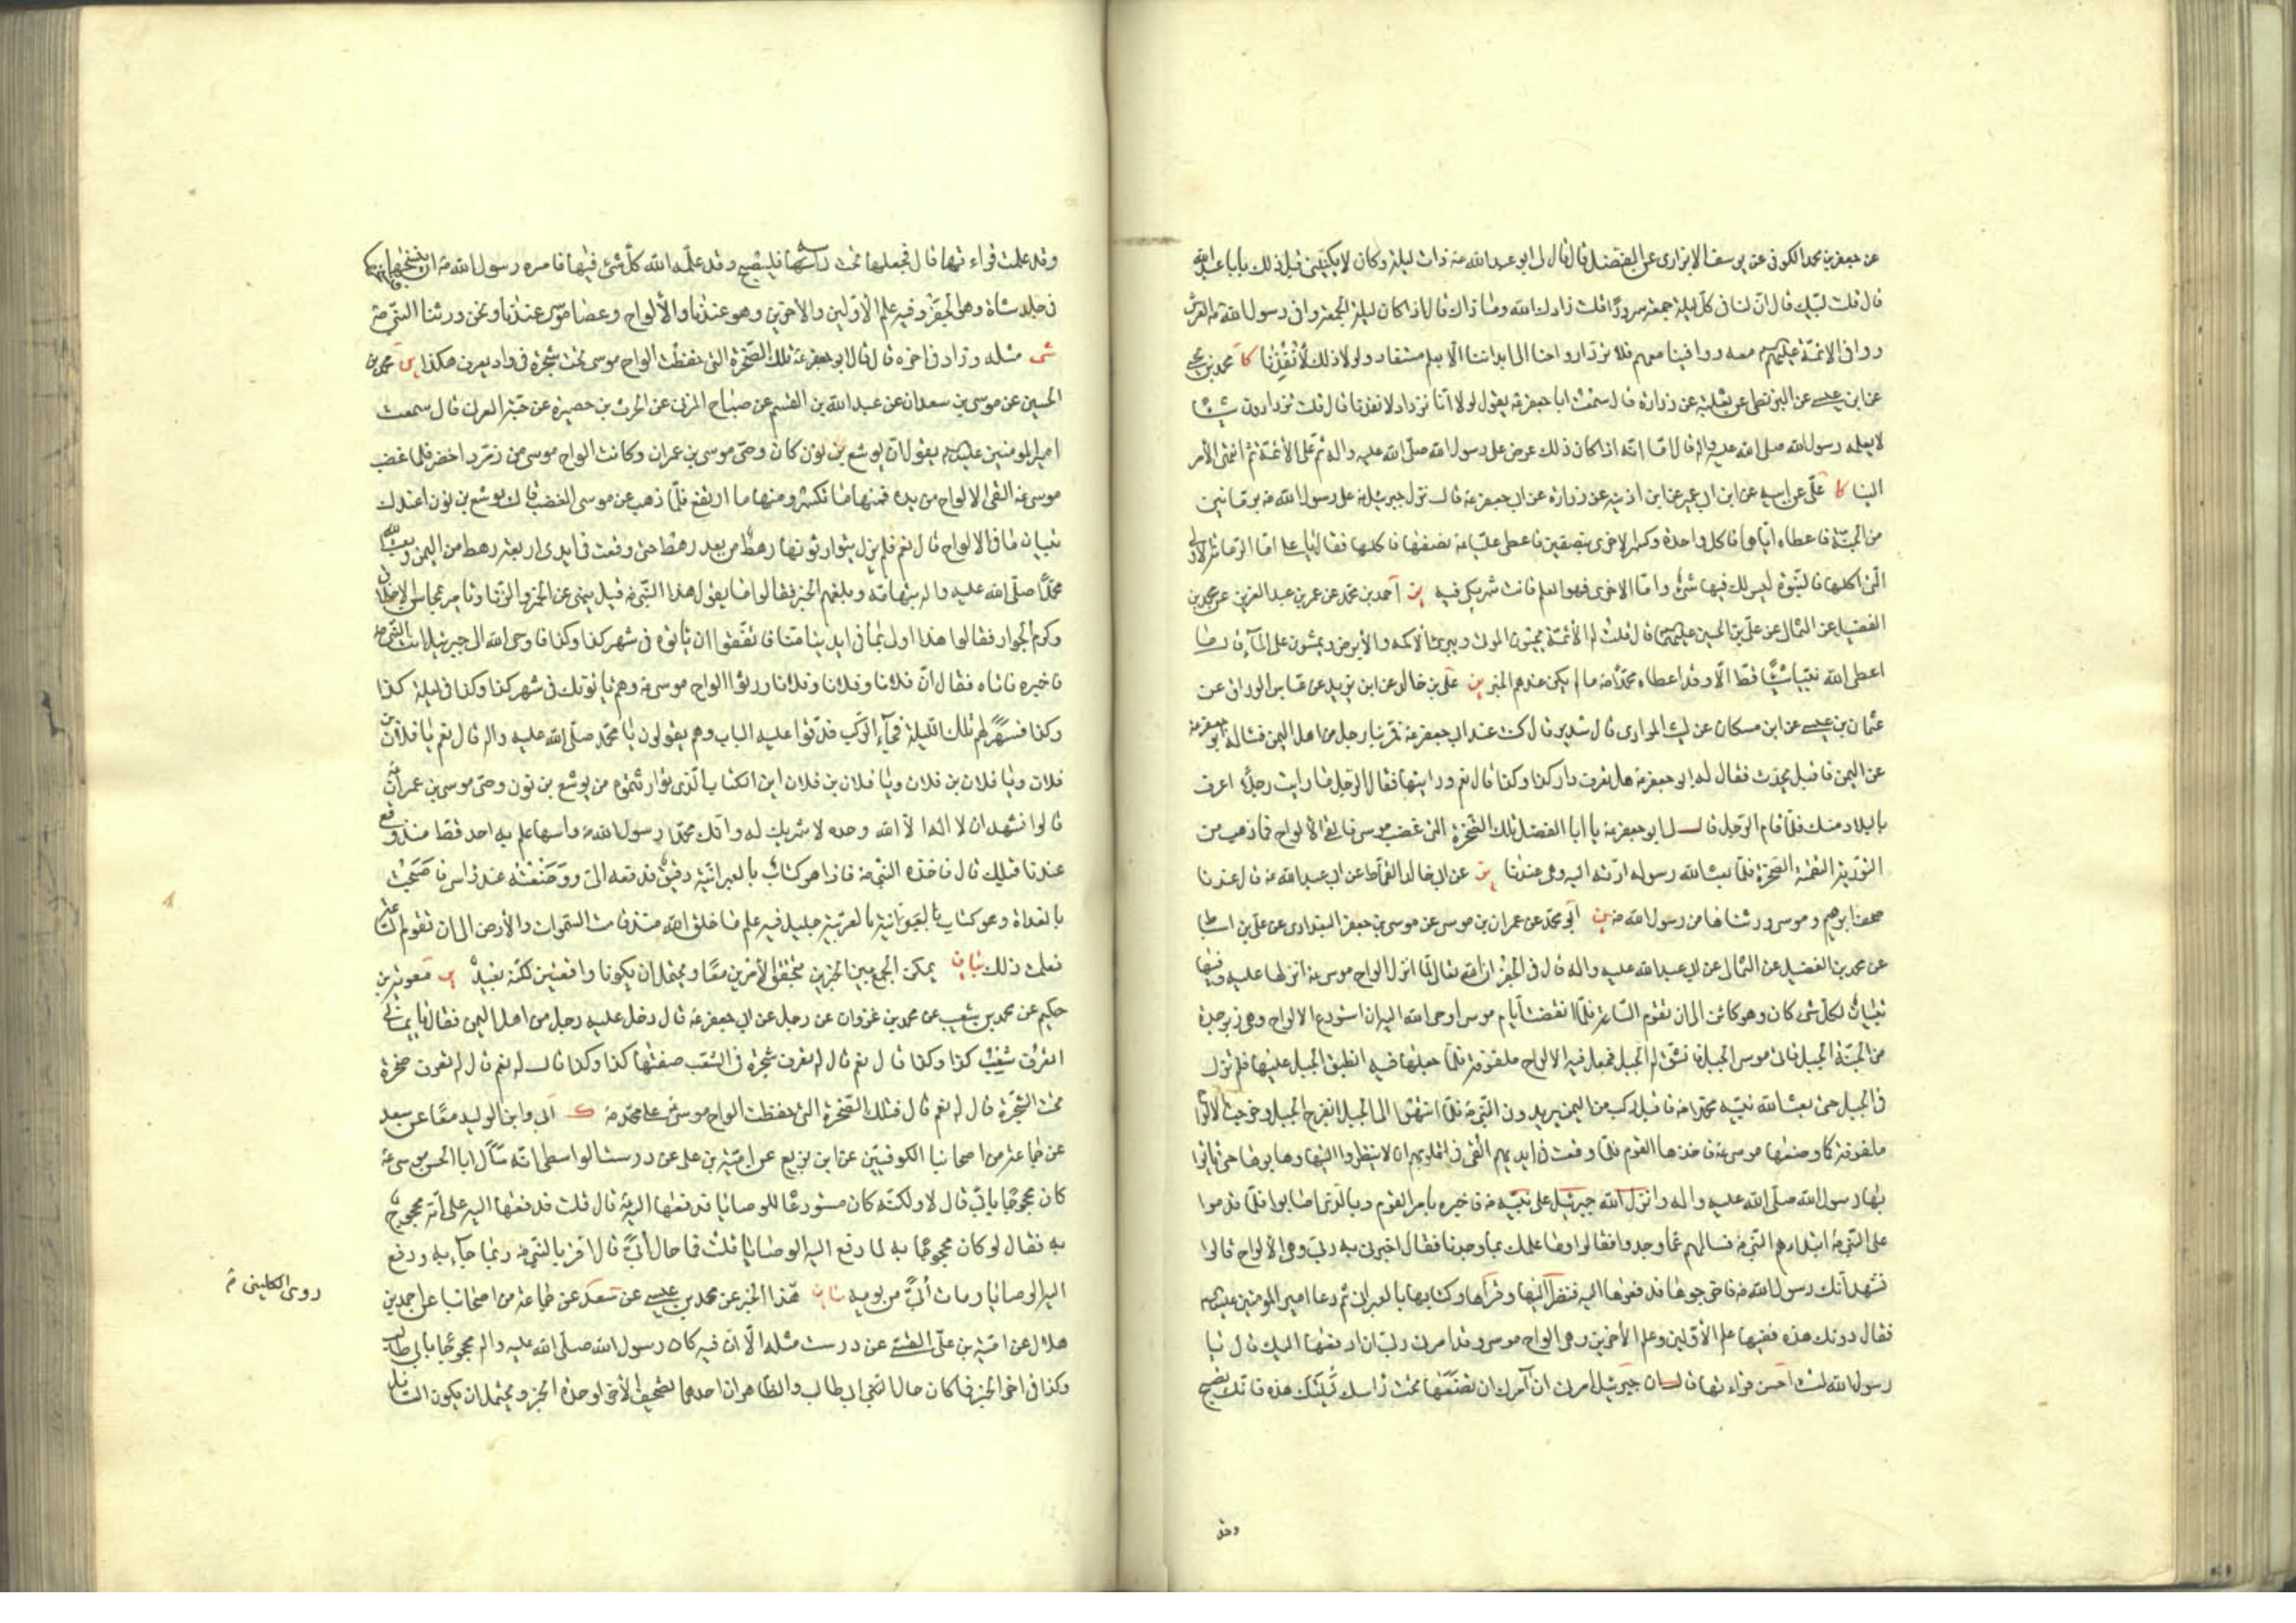 عن جعفر بن محمد الكوفي عن يوسف الابزاري عن المفضل قال قال لي ابو عبد الله ع ذات ليلة وكان لا يكنيني قبل ذلك يا با عبد الله
قال قلت لبيك قال ان لنا في كل ليلة جمعة سرورا قلت زادك الله وما ذاك قال اذا كان ليلة الجمعة وافى رسول الله ص العرش
ووافى الائمة عليهم معه ووافينا معهم فلا تردّ ارواحنا الى ابداننا الا بعلم مستفاد ولولا ذلك لأنفدنا كا محمد بن يحيى
عن ابن عيسى عن البزنطي عن ثعلبة عن زرارة قال سمعت ابا جعفر ع يقول لولا انا نزداد لانفدنا قال قلت تزدادون شيئا
لا يعلمه رسول الله صلى الله عليه واله قال اما انه اذا كان ذلك عرض على رسول الله صلى الله عليه واله ثم على الأئمة ثم انتهى الأمر
الينا كا علي عن ابيه عن ابن ابي عمير عن ابن اذينة عن زرارة عن ابي جعفر ع قال نزل جبرئيل ع على رسول الله ص برمانتين
من الجنة فاعطاه اياهما فاكل واحدة وكسر الاخرى بنصفين فاعطى عليا ع نصفها فاكلها فقال يا علي اما الرمانة الاولى
التي اكلتها فالنبوة ليس لك فيها شئ واما الاخرى فهو العلم فانت شريكي فيه ير احمد بن محمد عن عمر بن عبد العزيز عن محمد بن
الفضيل عن الثمالي عن علي بن الحسين عليهما قال قلت له الأئمة يحيون الموتى ويبرئ الأكمه والأبرص ويمشون على الماء قال ما
اعطى الله نبيا شيئا قط الا وقد اعطاه محمدا ص ما لم يكن عندهم الخبر ير علي بن خالد عن ابن يزيد عن عباس الوراق عن
عثمان بن عيسى عن ابن مسكان عن ليث المرادي قال سدير قال كنت عند ابي جعفر ع فمر بنا رجل من اهل اليمن فسأله ابو جعفر ع
عن اليمن فاقبل يحدث فقال له ابو جعفر ع هل تعرف دار كذا وكذا قال نعم ورايتها فقال الرجل ما رايت رجلا اعرف
بالبلاد منك فلما قام الرجل قال لي ابو جعفر ع يا ابا الفضل تلك الصخرة التي غضب موسى فالقى الألواح فما ذهب من
التورية التقمته الصخرة فلما بعث الله رسوله ادته اليه وهي عندنا ير عن ابي خالد القماط عن ابي عبد الله ع قال عندنا
صحف ابراهيم وموسى ورثناها من رسول الله ص ير ابو محمد عن عمران بن موسى عن موسى بن جعفر البغدادي عن علي بن اسباط
عن محمد بن الفضيل عن الثمالي عن ابي عبد الله عليه واله قال في الجفر ان الله تعالى لما انزل الواح موسى ع انزلها عليه وفيها
تبيان لكل شئ كان وهو كائن الى ان تقوم الساعة فلما انقضت ايام موسى اوحى الله اليه ان استودع الالواح وهي زبرجدة
من الجنة الجبل فاتى موسى الجبل فانشق له الجبل فجعل فيه الالواح ملفوفة فلما جعلها فيه انطبق الجبل عليها فلم تزل
في الجبل حتى بعث الله نبيه محمدا ص فاقبل ركب من اليمن يريدون النبي ص فلما انتهوا الى الجبل انفرج الجبل وخرجت الالواح
ملفوفة كما وضعها موسى ع فاخذها القوم فلما وقعت في ايديهم القي في قلوبهم ان لا ينظروا اليها وهابوها حتى ياتوا
بها رسول الله صلى الله عليه واله وانزل الله جبرئيل على نبيه ص فاخبره بامر القوم وبالذي اصابوا فلما قدموا
على النبي ص ابتدأهم النبي ص فسالهم عما وجدوا فقالوا وما علمك بما وجدنا فقال اخبرني به ربي وهي الألواح قالوا
نشهد انك رسول الله ص فاخرجوها فدفعوها اليه فنظر اليها وقرأها وكتابها بالعبراني ثم دعا امير المؤمنين عليه السلم
فقال دونك هذه ففيها علم الأولين وعلم الآخرين وهي الواح موسى وقد امرني ربي ان ادفعها اليك قال يا
رسول الله لست احسن قراءتها قال ان جبرئيل امرني ان آمرك ان تضعها تحت راسك ليلتك هذه فانك تصبح
وقد
وقد علمت قراءتها قال فجعلها تحت راسه فاصبح وقد علمه الله كل شئ فيها فامره رسول الله ص ان ينسخها فنسخها
في جلد شاة وهو الجفر وفيه علم الأولين والآخرين وهو عندنا والألواح وعصا موسى عندنا ونحن ورثنا النبي ص
شى مثله وزاد في اخره قال قال ابو جعفر ع تلك الصخرة التي حفظت الواح موسى تحت شجرة في واد يعرف هكذا ير محمد بن
الحسين عن موسى بن سعدان عن عبد الله بن القسم عن صباح المزني عن الحرث بن حصيرة عن حبة العرني قال سمعت
امير المؤمنين عليه يقول ان يوشع بن نون كان وصي موسى بن عمران وكانت الواح موسى من زمرد اخضر فلما غضب
موسى ع القى الالواح من يده فمنها ما تكسر ومنها ما ارتفع فلما ذهب عن موسى الغضب قال يوشع بن نون اعندك
تبيان ما في الالواح قال نعم فلم يزل يتوارثونها رهط من بعد رهط حتى وقعت في ايدي اربعة رهط من اليمن وبعث الله
محمدا صلى الله عليه واله بتهامة وبلغهم الخبر فقالوا ما يقول هذا النبي ص قيل ينهى عن الخمر والزنا ويامر بمحاسن الاخلاق
وكرم الجوار فقالوا هذا اولى بما في ايدينا منا فاتفقوا ان ياتوه في شهر كذا وكذا فاوحى الله الى جبرئيل ائت النبي ص
فاخبره فاتاه فقال ان فلانا وفلانا وفلانا ورثوا الواح موسى ع وهم ياتونك في شهر كذا وكذا في ليلة كذا
وكذا فسهر لهم تلك الليلة فجاء الركب فدقوا عليه الباب وهم يقولون يا محمد صلى الله عليه واله قال نعم يا فلان بن
فلان ويا فلان بن فلان ويا فلان بن فلان اين الكتاب الذي توارثتموه من يوشع بن نون وصي موسى بن عمران
قالوا نشهد ان لا اله الا الله وحده لا شريك له وانك محمدا رسول الله ص والله ما علم به احد قط منذ وقع
عندنا قبلك قال فاخذه النبي ص فاذا هو كتاب بالعبرانية دقيق فدفعه الي ووضعته عند راسي فاصبحت
بالغداة وهو كتاب بالعربية جليل فيه علم ما خلق الله منذ قامت السموات والأرض الى ان تقوم الساعة
فعلمت ذلك بيان يمكن الجمع بين الخبرين بتحقق الأمرين معا ويحتمل ان يكونا واقعتين لكنه بعيد ير معوية بن
حكيم عن محمد بن شعيب عن محمد بن غزوان عن رجل عن ابي جعفر ع قال دخل عليه رجل من اهل اليمن فقال يا يماني
اتعرف شعب كذا وكذا قال نعم قال له تعرف شجرة في الشعب صفتها كذا وكذا قال له نعم قال له تعرف صخرة
تحت الشجرة قال له نعم قال فتلك الصخرة التي حفظت الواح موسى على محمد ص ك ابي وابن الوليد معا عن سعد
عن جماعة من اصحابنا الكوفيين عن ابن بزيع عن امية بن علي عن درست الواسطي انه سأل ابا الحسن موسى ع
كان محجوجا بابي قال لا ولكنه كان مستودعا للوصايا فدفعها اليه ع قال قلت فدفعها اليه على انه محجوج
به فقال لو كان محجوجا به لما دفع اليه الوصايا قلت فما حال أبي قال اقر بالنبي ص وبما جاء به ودفع
اليه الوصايا ومات أبي من يومه بيان هذا الخبر عن محمد بن عيسى عن سعد عن جماعة من اصحابنا عن احمد بن
روى الكليني ره
هلال عن امية بن علي القيسي عن درست مثله الا ان فيه كان رسول الله صلى الله عليه واله محجوجا بابي طالب
وكذا في اخر الخبر فما كان حال ابي طالب والظاهر ان احدهما تصحيف الأخر لوحدة الخبر ويحتمل ان يكون السائل